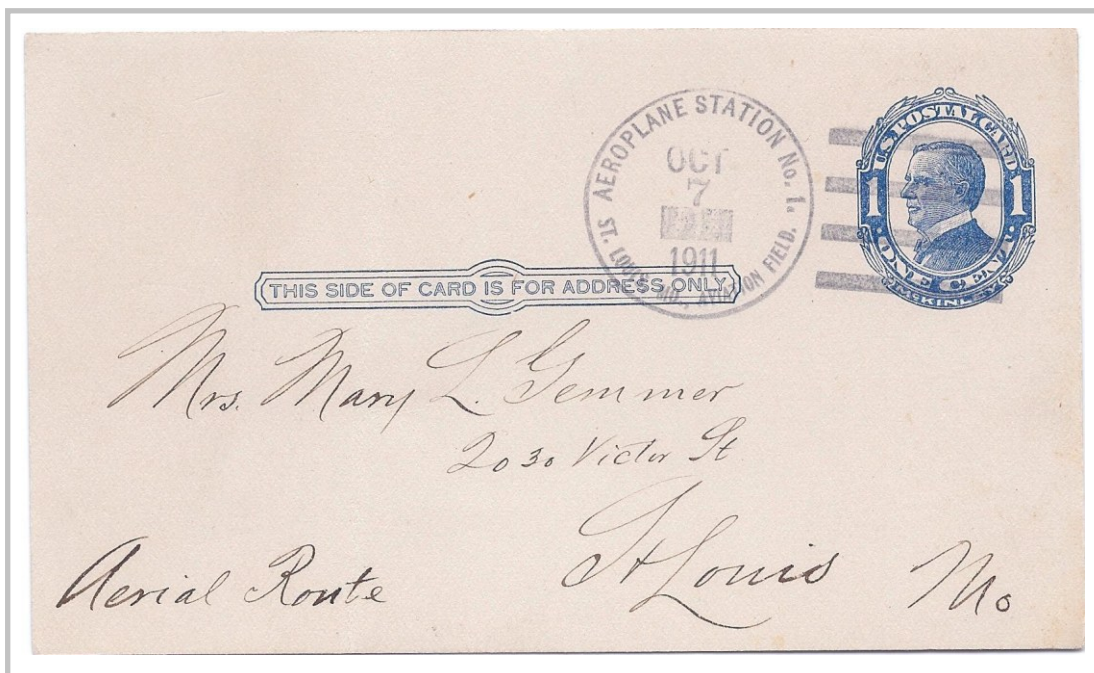 AEROPLANE STATION No. 1.
ST. LOUIS, MO., AVIATION FIELD.
OCT
7
1911
U.S. POSTAL CARD
1 1
ONE CENT
McKINLEY
THIS SIDE OF CARD IS FOR ADDRESS ONLY
Mrs. Mary L. Gemmer
2030 Victor St
St Louis Mo
Aerial Route